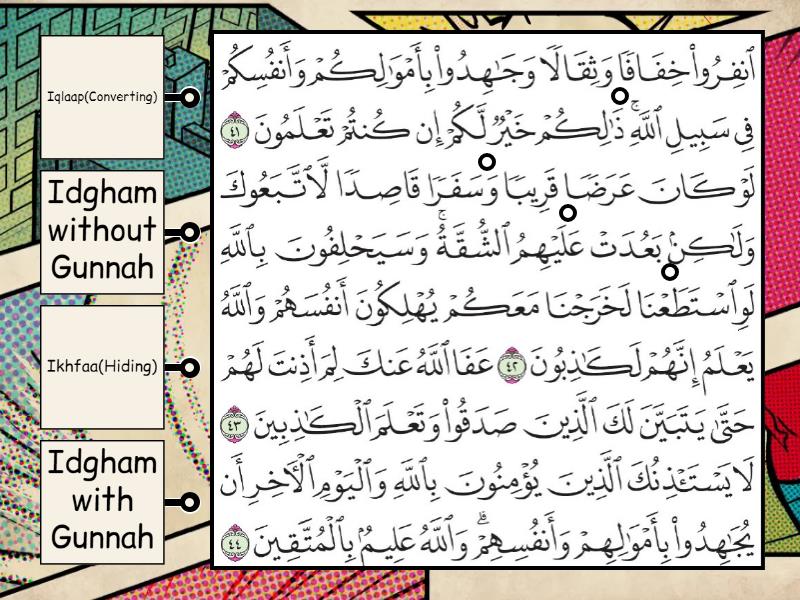 Iqlaap(Converting)
Idgham
without
Gunnah
Ikhfaa(Hiding)
Idgham
with
Gunnah
ٱنفِرُوا۟ خِفَافًا وَثِقَالًا وَجَـٰهِدُوا۟ بِأَمْوَٰلِكُمْ وَأَنفُسِكُمْ
فِى سَبِيلِ ٱللَّهِ ۚ ذَٰلِكُمْ خَيْرٌ لَّكُمْ إِن كُنتُمْ تَعْلَمُونَ ٤١
لَوْ كَانَ عَرَضًا قَرِيبًا وَسَفَرًا قَاصِدًا لَّٱتَّبَعُوكَ
وَلَـٰكِنۢ بَعُدَتْ عَلَيْهِمُ ٱلشُّقَّةُ ۚ وَسَيَحْلِفُونَ بِٱللَّهِ
لَوِ ٱسْتَطَعْنَا لَخَرَجْنَا مَعَكُمْ يُهْلِكُونَ أَنفُسَهُمْ وَٱللَّهُ
يَعْلَمُ إِنَّهُمْ لَكَـٰذِبُونَ ٤٢ عَفَا ٱللَّهُ عَنكَ لِمَ أَذِنتَ لَهُمْ
حَتَّىٰ يَتَبَيَّنَ لَكَ ٱلَّذِينَ صَدَقُوا۟ وَتَعْلَمَ ٱلْكَـٰذِبِينَ ٤٣
لَا يَسْتَـْٔذِنُكَ ٱلَّذِينَ يُؤْمِنُونَ بِٱللَّهِ وَٱلْيَوْمِ ٱلْـَٔاخِرِ أَن
يُجَـٰهِدُوا۟ بِأَمْوَٰلِهِمْ وَأَنفُسِهِمْ ۗ وَٱللَّهُ عَلِيمٌۢ بِٱلْمُتَّقِينَ ٤٤